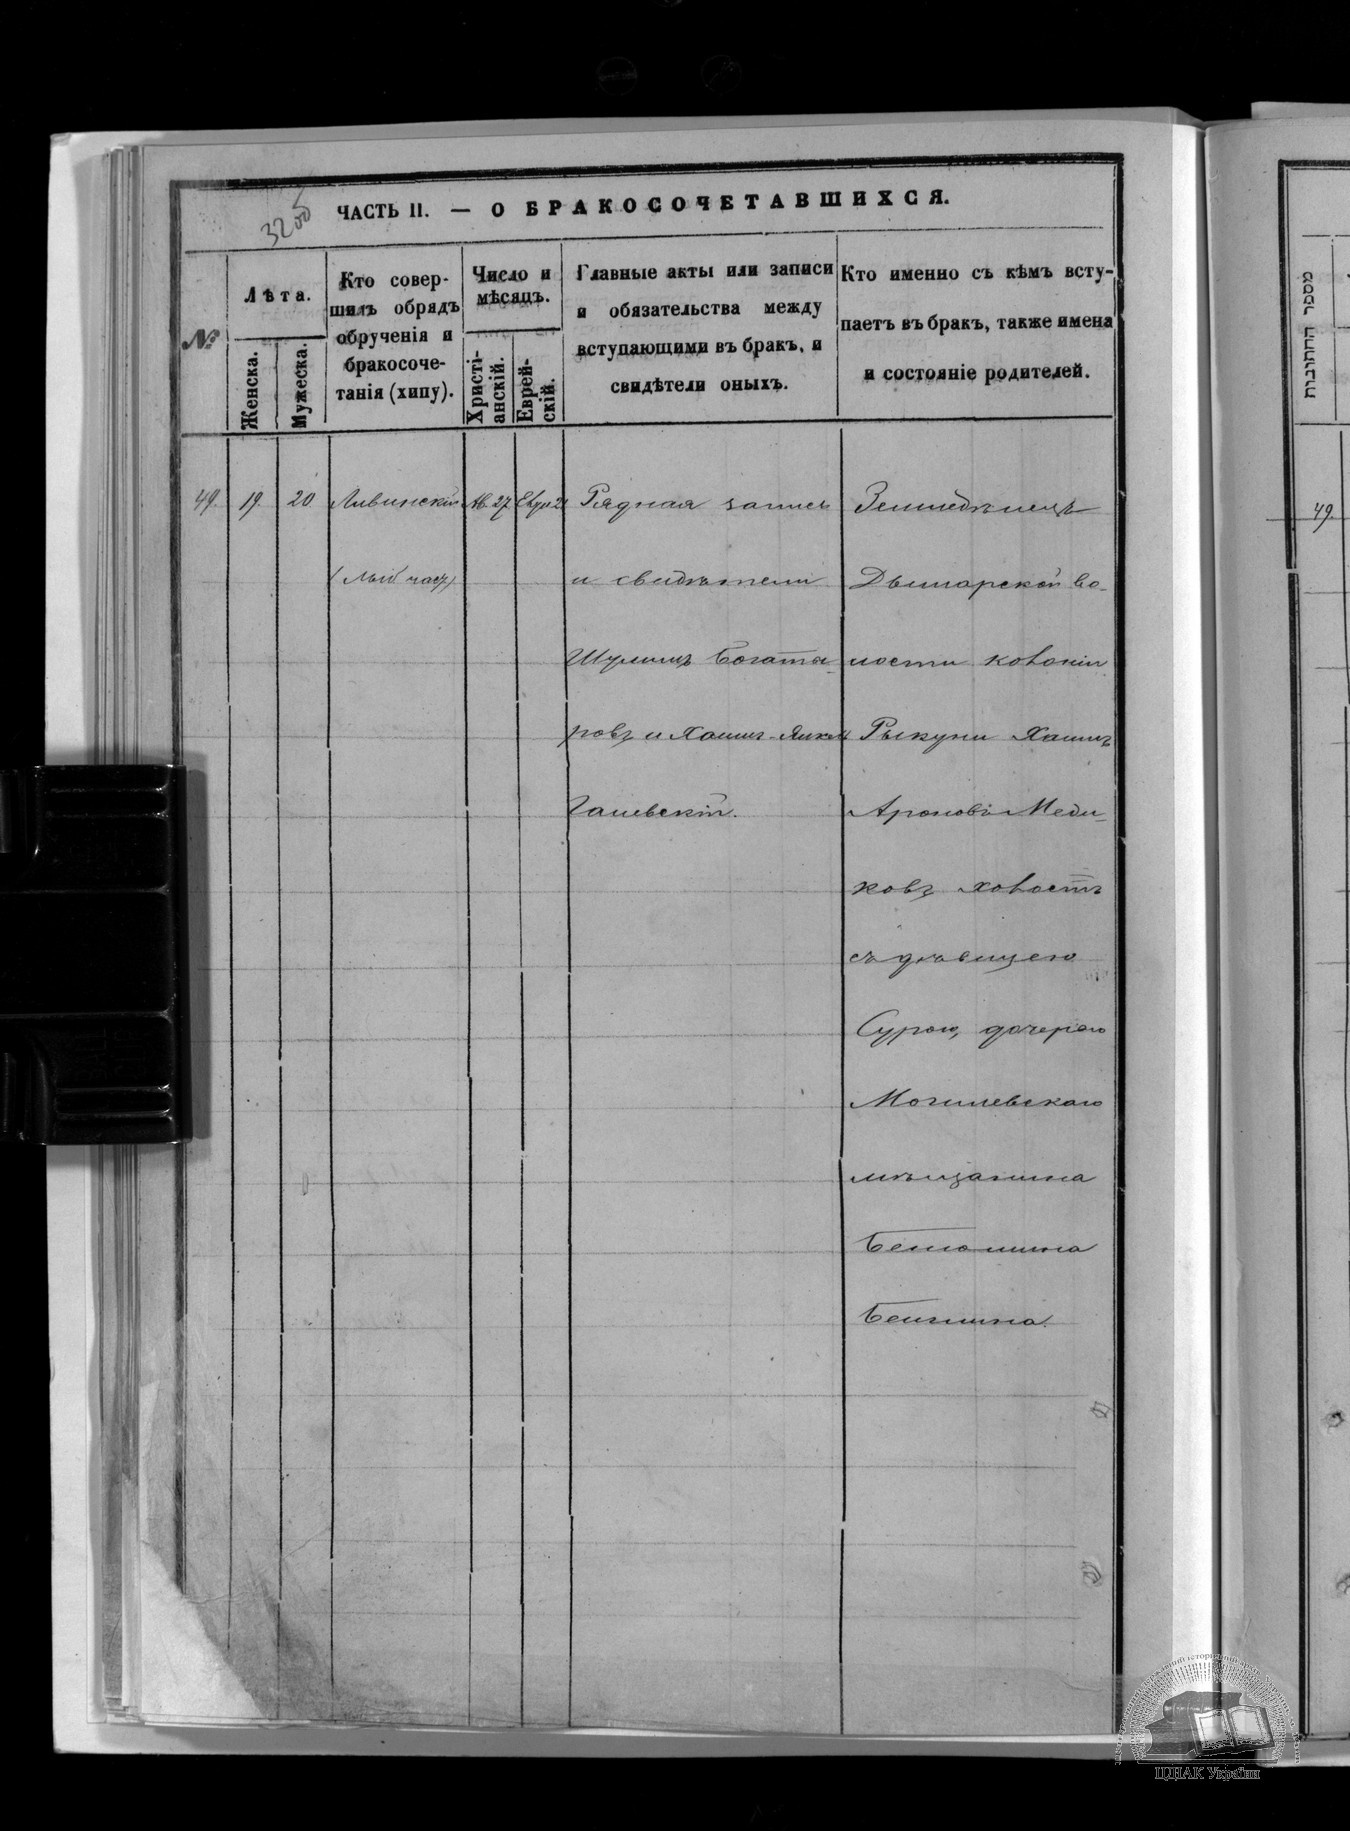 3200
ЧАСТЬ II. — О БРАКОСОЧЕТАВШИХСЯ.
№
Лѣта.
Женска.
Мужеска.
Кто совер-
шилъ обрядъ
обрученія и
бракосоче-
танія (хипу).
Число и
мѣсяцъ.
Христі-
анскій.
Еврей-
скій.
Главные акты или записи
и обязательства между
вступающими въ бракъ, и
свидѣтели оныхъ.
Кто именно съ кѣмъ всту-
паетъ въ бракъ, также имена
и состояніе родителей.
49. 19. 20 Ливинскій 27 Рядная запись
и свидѣтели
Шулимъ Богаты-
ровъ и Хаимъ-
Галевскій.
Земледѣлецъ
Дымарской во-
лости колоніи
Рыкуни Хаимъ
Ароновъ Меди-
ковъ холостъ
съ дѣвицею
Сурою, дочерью
Могилевскаго
мѣщанина
מספר החתונות
49.
ЦДІАК України